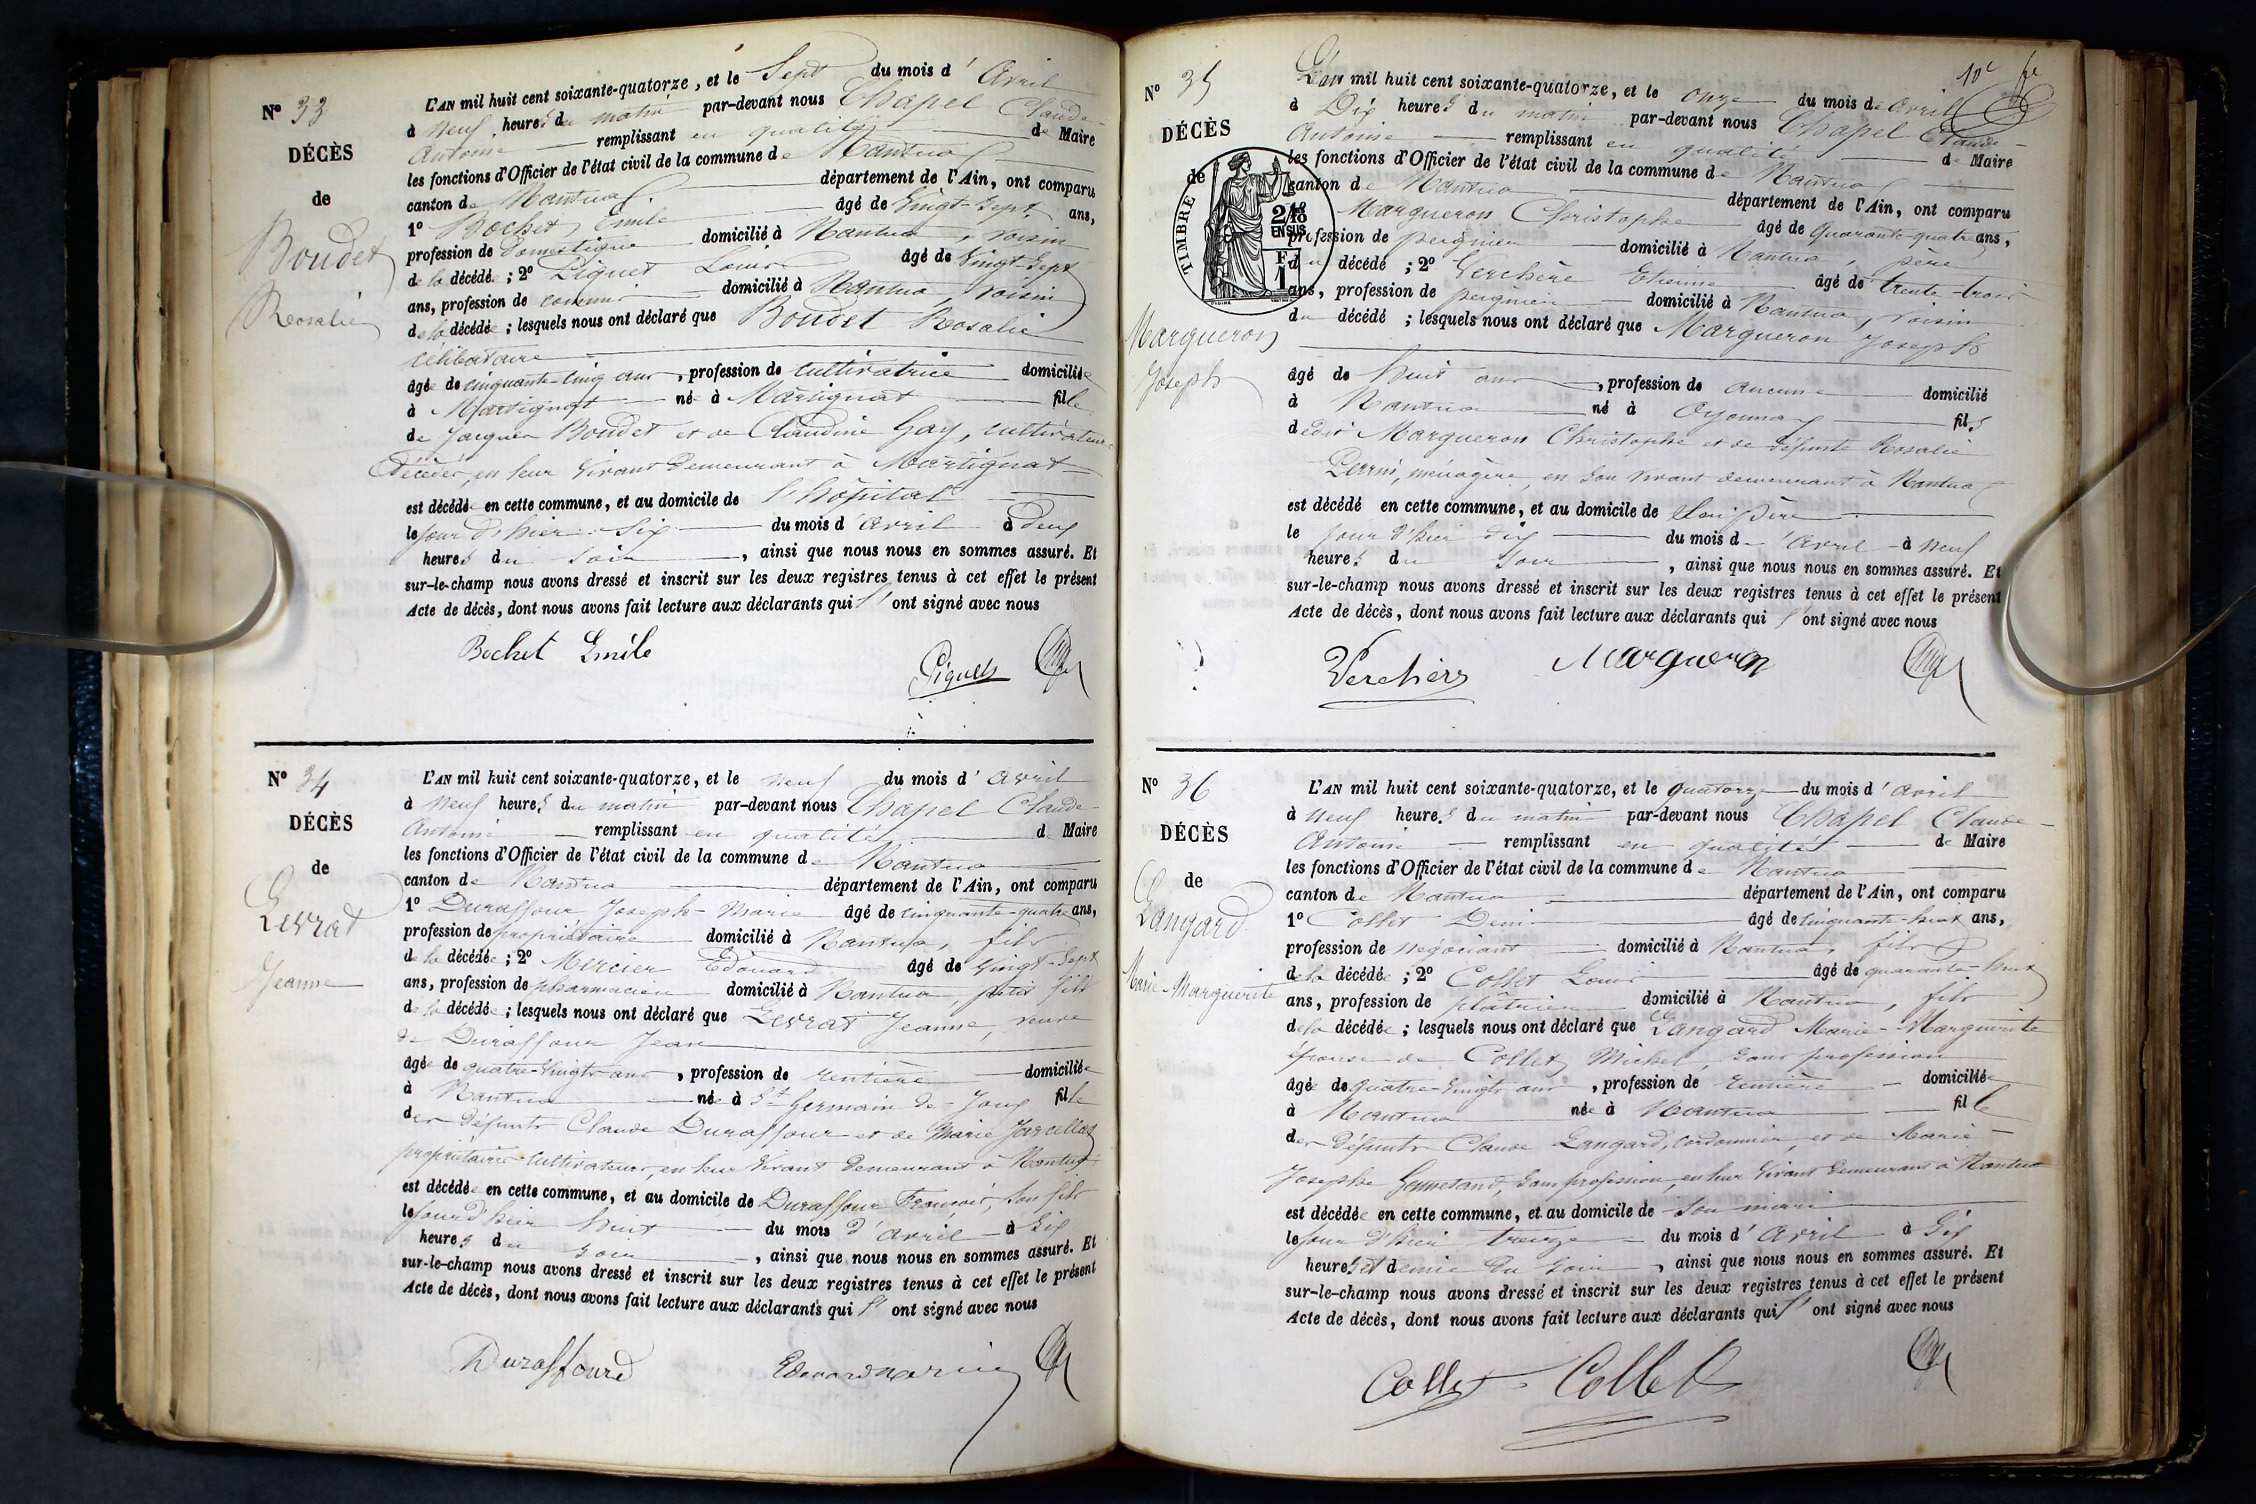 N° 33
DÉCÈS
de
Boudet
Rosalie
L'AN mil huit cent soixante-quatorze, et le Sept du mois d'Avril
à neuf heures du matin par-devant nous Chapel Claude-
Antoine remplissant en qualité de Maire
les fonctions d'Officier de l'état civil de la commune de Nantua
canton de Nantua département de l'Ain, ont comparu
1° Bochet Emile âgé de Vingt-Sept ans,
profession de Domestique domicilié à Nantua, voisin
de la décédée ; 2° Piquet Louis âgé de Vingt-Sept
ans, profession de commis domicilié à Nantua, voisin
de la décédée ; lesquels nous ont déclaré que Boudet Rosalie
célibataire
âgée de cinquante-cinq ans, profession de cultivatrice domiciliée
à Martignat née à Martignat fille
de Jacques Boudet et de Claudine Gay, cultivateurs
Décédés, en leur vivant demeurant à Martignat
est décédée en cette commune, et au domicile de l'hôpital
le jour d'hier Six du mois d'avril à deux
heures du soir, ainsi que nous nous en sommes assuré. Et
sur-le-champ nous avons dressé et inscrit sur les deux registres tenus à cet effet le présent
Acte de décès, dont nous avons fait lecture aux déclarants qui l'ont signé avec nous
Bochet Emile
N° 34
DÉCÈS
de
Levrat
Jeanne
L'AN mil huit cent soixante-quatorze, et le neuf du mois d'avril
à neuf heures du matin par-devant nous Chapel Claude-
Antoine remplissant en qualité de Maire
les fonctions d'Officier de l'état civil de la commune de Nantua
canton de Nantua département de l'Ain, ont comparu
1° Duraffour Joseph-Marie âgé de cinquante-quatre ans,
profession de propriétaire domicilié à Nantua, fils
de la décédée ; 2° Mercier Edouard âgé de Vingt-Sept
ans, profession de pharmacien domicilié à Nantua, petit fils
de la décédée ; lesquels nous ont déclaré que Levrat Jeanne, veuve
de Duraffour Jean
âgée de quatre-Vingts ans, profession de rentière domiciliée
à Nantua née à St Germain de Joux fille
des défunts Claude Duraffour et de Marie
propriétaires cultivateurs, en leur vivant demeurant à Nantua
est décédée en cette commune, et au domicile de Duraffour François, son fils
le jour d'hier huit du mois d'avril à Six
heures du soir, ainsi que nous nous en sommes assuré. Et
sur-le-champ nous avons dressé et inscrit sur les deux registres tenus à cet effet le présent
Acte de décès, dont nous avons fait lecture aux déclarants qui l'ont signé avec nous
Duraffourd
N° 35
DÉCÈS
de
TIMBRE
EN SUS
1
Margueron
Joseph
L'an mil huit cent soixante-quatorze, et le onze du mois de Avril
à Dix heures du matin par-devant nous Chapel Claude-
Antoine remplissant en qualité de Maire
les fonctions d'Officier de l'état civil de la commune de Nantua
canton de Nantua département de l'Ain, ont comparu
Margueron Christophe âgé de Quarante-quatre ans,
profession de peignier domicilié à Nantua, père
du décédé ; 2° Verchère Etienne âgé de trente-trois
ans, profession de peignier domicilié à Nantua, voisin
du décédé ; lesquels nous ont déclaré que Margueron Joseph
âgé de huit ans, profession de aucune domicilié
à Nantua né à Oyonnax fils
dedit Margueron Christophe et de défunte Rosalie
Perrin, ménagère, en son vivant demeurant à Nantua
est décédé en cette commune, et au domicile de Son père
le jour d'hier dix du mois d'Avril à neuf
heures du soir, ainsi que nous nous en sommes assuré. Et
sur-le-champ nous avons dressé et inscrit sur les deux registres tenus à cet effet le présent
Acte de décès, dont nous avons fait lecture aux déclarants qui l'ont signé avec nous
Margueron
N° 36
DÉCÈS
de
Langard
Marie-Marguerite
L'AN mil huit cent soixante-quatorze, et le quatorze du mois d'avril
à neuf heures du matin par-devant nous Chapel Claude-
Antoine remplissant en qualité de Maire
les fonctions d'Officier de l'état civil de la commune de Nantua
canton de Nantua département de l'Ain, ont comparu
1° Collet Denis âgé de cinquante-huit ans,
profession de négociant domicilié à Nantua, fils
de la décédée ; 2° Collet Louis âgé de quarante-huit
ans, profession de plâtrier domicilié à Nantua, fils
de la décédée ; lesquels nous ont déclaré que Langard Marie-Marguerite
épouse de Collet Michel, sans profession
âgée de quatre-Vingts ans, profession de rentière domiciliée
à Nantua née à Nantua fille
des défunts Claude Langard, cordonnier, et de Marie-
Josephe sans profession, en leur vivant demeurant à Nantua
est décédée en cette commune, et au domicile de son mari
le jour d'hier treize du mois d'Avril à Six
heures et demie du soir, ainsi que nous nous en sommes assuré. Et
sur-le-champ nous avons dressé et inscrit sur les deux registres tenus à cet effet le présent
Acte de décès, dont nous avons fait lecture aux déclarants qui l'ont signé avec nous
Collet Collet